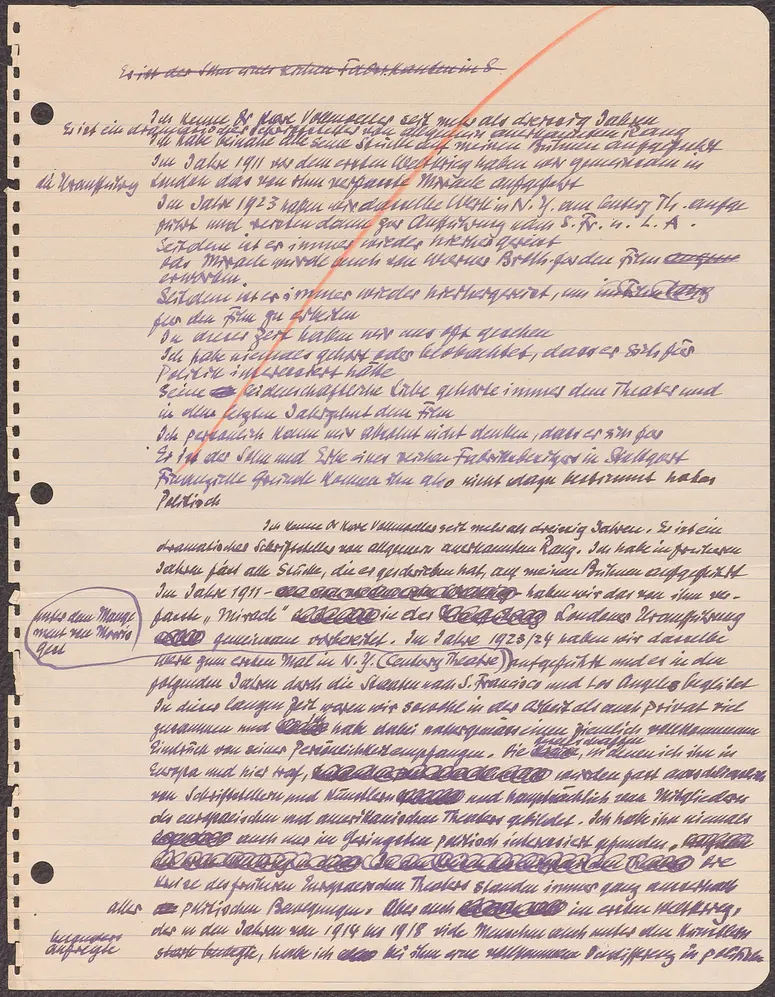 Es ist der Sohn eines reichen Fabrikanten in S.
Ich kenne Dr Karl Vollmoeller seit mehr als dreissig Jahren
Es ist ein dramatischer Schriftsteller von allgemein anerkanntem Rang
Ich habe beinahe alle seine Stücke auf meinen Bühnen aufgeführt
Im Jahre 1911 vor dem ersten Weltkrieg haben wir gemeinsam in
die Uraufführung London das von ihm verfasste Miracle aufgeführt
Im Jahre 1923 haben wir dasselbe Werk in N.Y. am Century Th. aufge
führt und reisten dann zur Aufführung nach S. Fr. u. L. A.
Seitdem ist er immer wieder hierhergereist
Das Miracle wurde auch von Warner Broths für den Film
erworben
Seitdem ist er immer wieder hierhergereist, um
für den Film zu arbeiten
In dieser Zeit haben wir uns oft gesehen
Ich habe niemals gehört oder beobachtet, dass er sich für
Politik interessiert hätte
Seine leidenschaftliche Liebe gehörte immer dem Theater und
in dem letzten Jahrzehnt dem Film
Ich persönlich kann mir absolut nicht denken, dass er sich für
Es ist der Sohn und Erbe eines reichen Fabrikbesitzers in Stuttgart
Finanzielle Gründe können ihn also nicht dazu bestimmt haben
Politisch
Ich kenne Dr Karl Vollmoeller seit mehr als dreissig Jahren. Er ist ein
dramatischer Schriftsteller von allgemein anerkanntem Rang. Ich habe in früheren
Jahren fast alle Stücke, die er geschrieben hat, auf meinen Bühnen aufgeführt
Im Jahre 1911 haben wir das von ihm ver-
fasste „Miracle" in der Londoner Uraufführung
unter dem Manage
ment von Morris
Gest
gemeinsam vorbereitet. Im Jahre 1923/24 haben wir dasselbe
Werk zum ersten Mal in N.Y. (Century Theatre) aufgeführt und es in den
folgenden Jahren durch die Staaten nach S. Francisco und Los Angeles begleitet
In dieser langen Zeit waren wir sowohl in der Arbeit als auch privat viel
zusammen und ich habe dabei naturgemäss einen ziemlich vollkommenen
Eindruck von seiner Persönlichkeit empfangen. Die Gesellschaften, in denen ich ihn in
Europa und hier traf, wurden fast ausschliesslich
von Schriftstellern und Künstlern und hauptsächlich von Mitgliedern
des europäischen und amerikanischen Theaters gebildet. Ich habe ihn niemals
auch nur im Geringsten politisch interessiert gefunden.
Die
Kreise des früheren Europäischen Theaters standen immer ganz ausserhalb
aller politischen Bewegungen. Aber auch im ersten Weltkrieg,
der in den Jahren von 1914 bis 1918 viele Menschen auch unter den Künstlern
besonders
aufregte
stark bewegte, habe ich bei ihm eine vollkommene Indifferenz in politischen